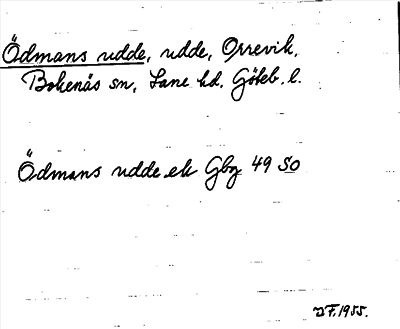 Ödmans udde, udde, Orrevik,
Bokenäs sn, Lane hd. Göteb. l.
Ödmans udde ek Gbg 49 SO
IF.1955.